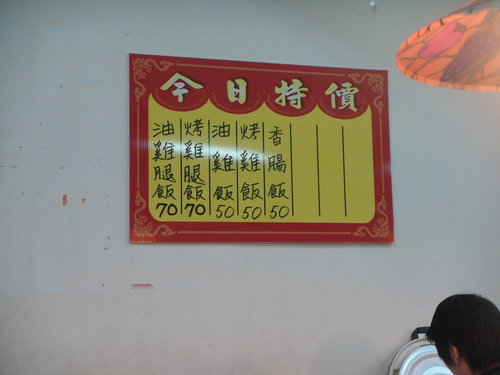 今日特價
油雞腿飯70
烤雞腿飯70
油雞飯50
烤雞飯50
香腸飯50